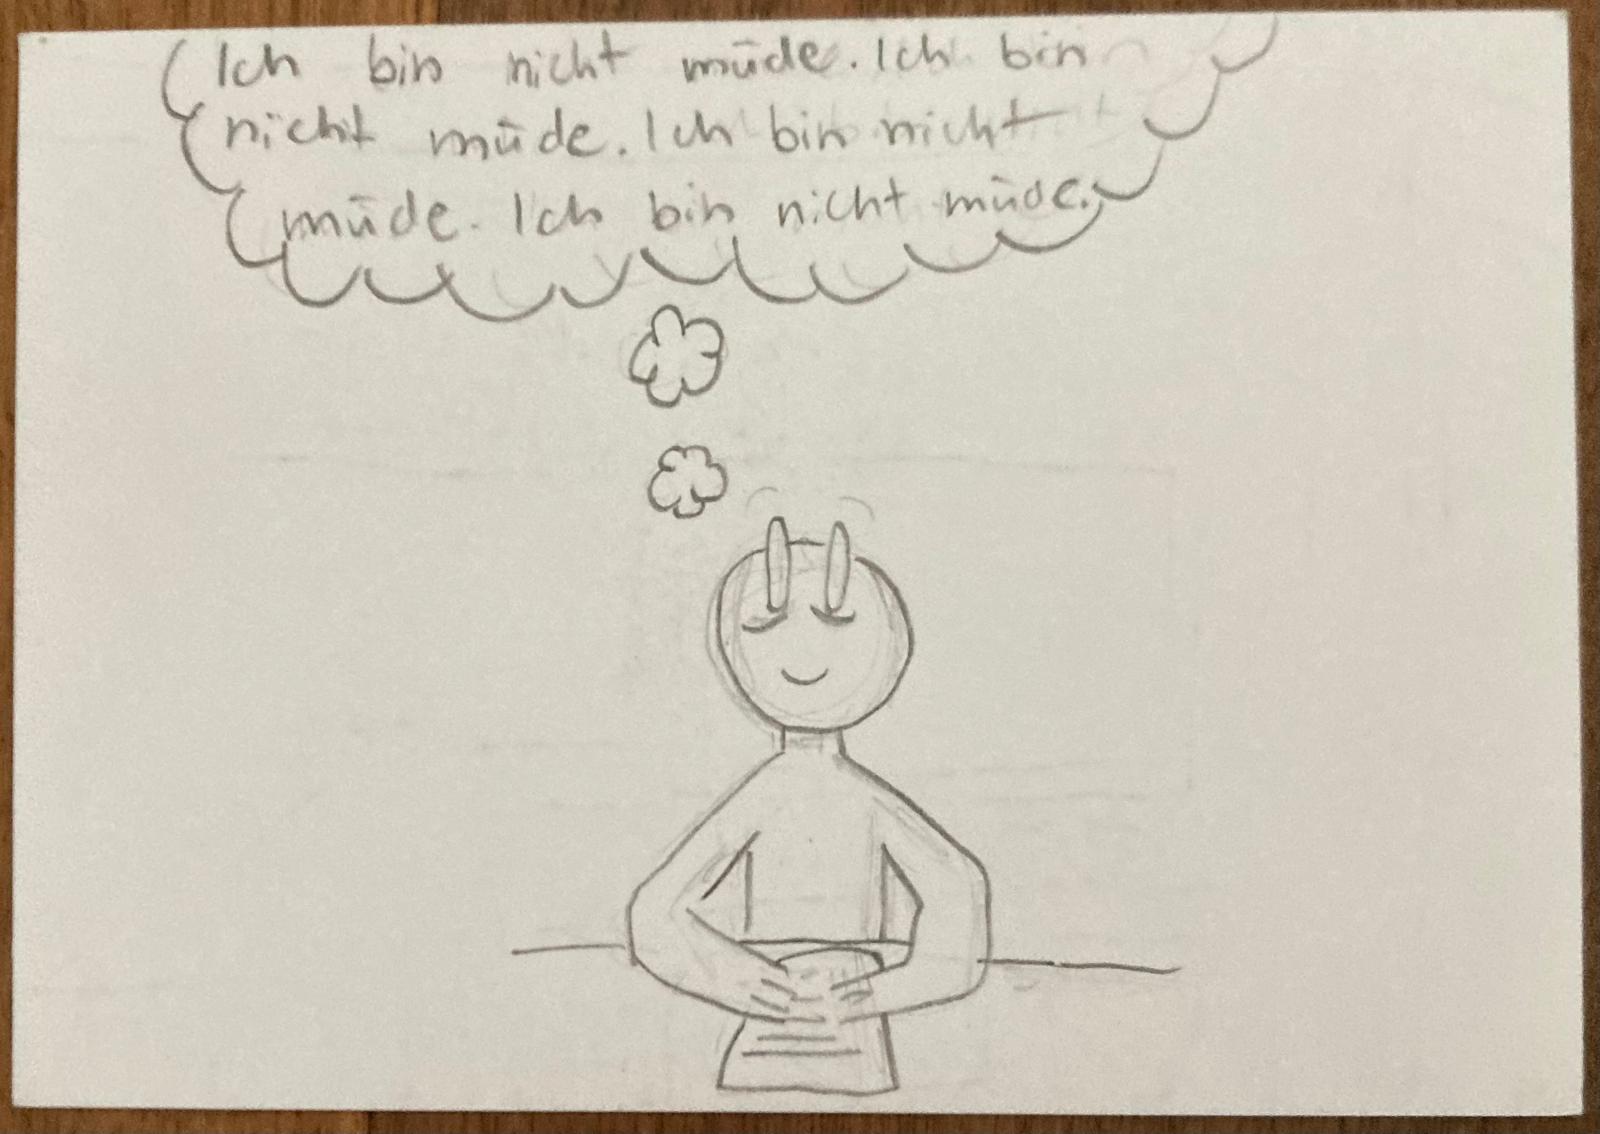 Ich bin nicht müde. Ich bin
nicht müde. Ich bin nicht
müde. Ich bin nicht müde.